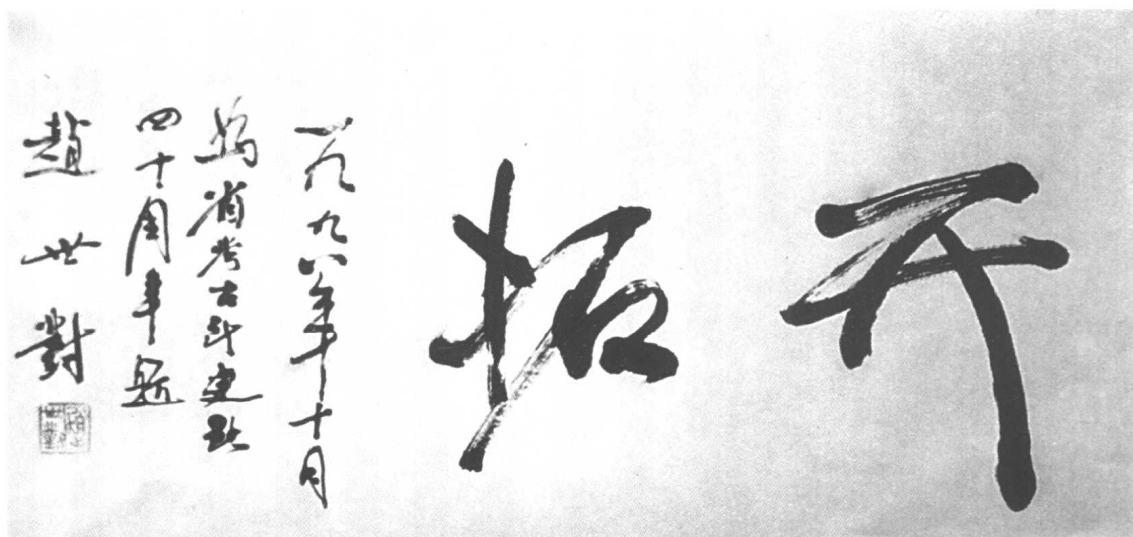 开拓
一九九八年十月
为省考古所建所
四十周年题
趙世對